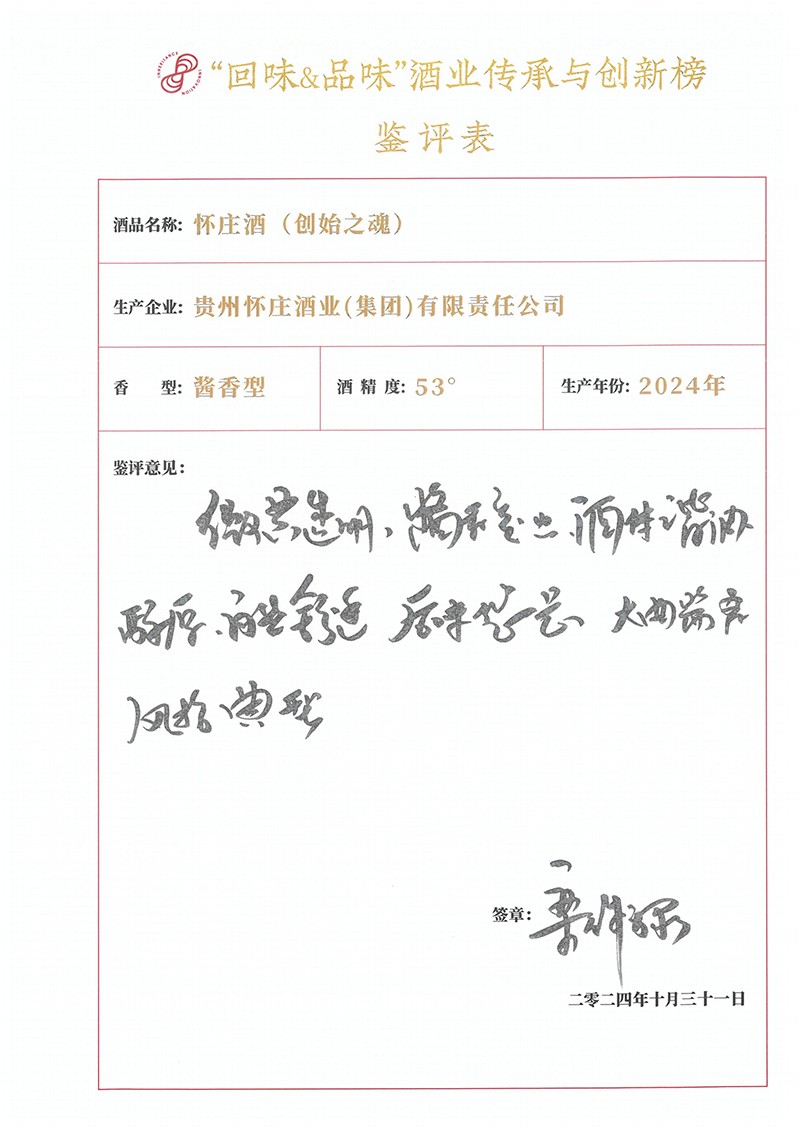 INHERITANCE INNOVATION
“回味&品味”酒业传承与创新榜
鉴评表
酒品名称: 怀庄酒（创始之魂）
生产企业: 贵州怀庄酒业(集团)有限责任公司
香 型: 酱香型
酒 精 度: 53°
生产年份: 2024年
鉴评意见:
微黄透明、酱香突出、酒体谐调
醇厚、舒适 后味 大曲酱香
风格典型
签章:
二零二四年十月三十一日